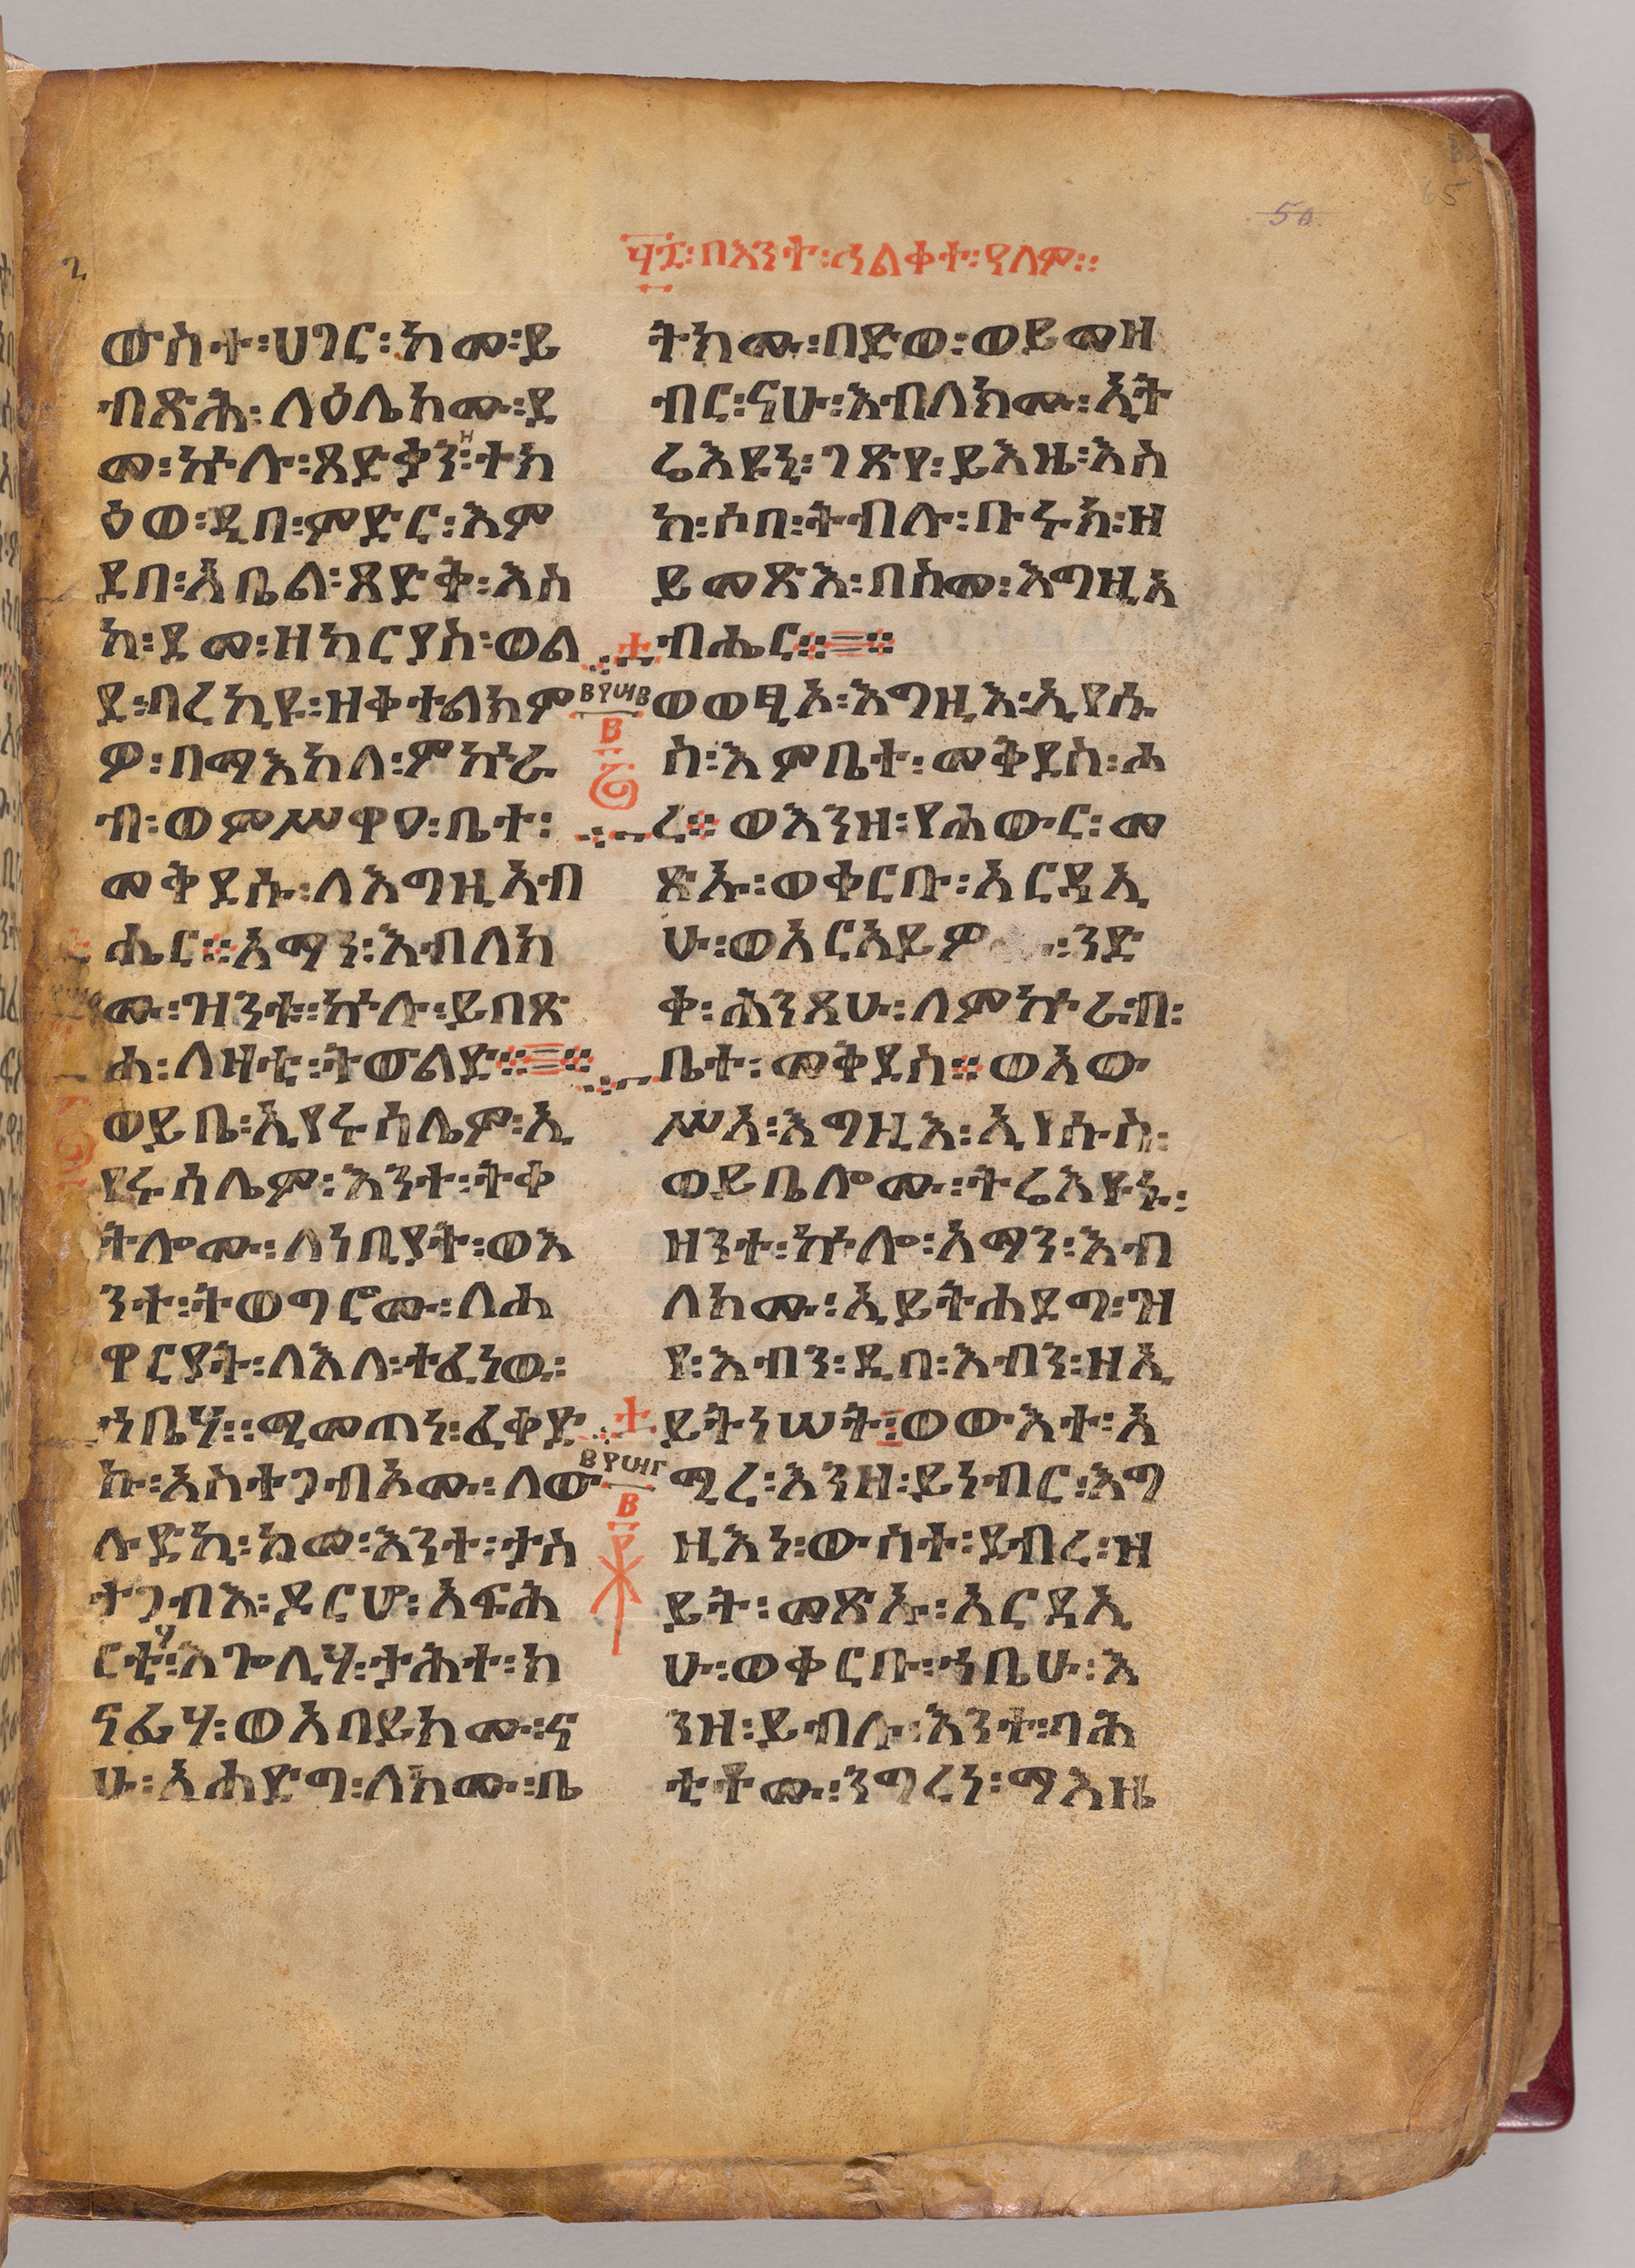 ፶፯፡ በእንተ፡ ኅልቀተ፡ ዓለም።
ውስተ፡ ሀገር፡ ከመ፡ ይ
ብጽሕ፡ ላዕሌክሙ፡ ደ
መ፡ ኵሉ፡ ጻድቃን፡ ዘተክ
ዕወ፡ ዲበ፡ ምድር፡ እም
ደበ፡ አቤል፡ ጻድቅ፡ እስ
ከ፡ ደመ፡ ዘካርያስ፡ ወል
ደ፡ ባረኪዩ፡ ዘቀተልክም
ዎ፡ በማእከለ፡ ምኵራ
ብ፡ ወምሥዋዐ፡ ቤተ፡
መቅደሱ፡ ለእግዚአብ
ሔር። አማን፡ እብለክ
ሙ፡ ዝንቱ፡ ኵሉ፡ ይበጽ
ሐ፡ ለዛቲ፡ ትውልድ።
ወይቤ፡ ኢየሩሳሌም፡ ኢ
የሩሳሌም፡ እንተ፡ ትቀ
ትሎሙ፡ ለነቢያት፡ ወእ
ንተ፡ ትወግሮሙ፡ ለሐ
ዋርያት፡ ለእለ፡ ተፈነዉ፡
ኀቤሃ፡ ሚመጠነ፡ ፈቀድ
ኩ፡ አስተጋብኦሙ፡ ለው
ሉድኪ፡ ከመ፡ እንተ፡ ታስ
ተጋብእ፡ ዶርሆ፡ አፍሕ
ርቲሃ፡ እጐሊሃ፡ ታሕተ፡ ክ
ናፊሃ፡ ወአበይክሙ፡ ና
ሁ፡ አሐድግ፡ ለክሙ፡ ቤ
ትክሙ፡ በድወ፡ ወይመዝ
ብር፡ ናሁ፡ እብለክሙ፡ ኢት
ሬእዩኒ፡ ገጽየ፡ ይእዜ፡ እስ
ከ፡ ሶበ፡ ትብሉ፡ ቡሩክ፡ ዘ
ይመጽእ፡ በስመ፡ እግዚአ
ብሔር።
ወወፂኦ፡ እግዚእ፡ ኢየሱ
ስ፡ እምቤተ፡ መቅደስ፡ ሐ
ረ። ወእንዘ፡ የሐውር፡ መ
ጽኡ፡ ወቀርቡ፡ አርዳኢ
ሁ፡ ወአርአይዎ፡ ንድ
ቀ፡ ሕንጻሁ፡ ለምኵራብ፡
ቤተ፡ መቅደስ። ወአው
ሥአ፡ እግዚእ፡ ኢየሱስ፡
ወይቤሎሙ፡ ትሬእዩኑ፡
ዘንተ፡ ኵሎ፡ አማን፡ እብ
ለክሙ፡ ኢይትሐደግ፡ ዝ
የ፡ እብን፡ ዲበ፡ እብን፡ ዘኢ
ይትነሠት፡ ወውእተ፡ አ
ሚረ፡ እንዘ፡ ይነብር፡ እግ
ዚእነ፡ ውስተ፡ ደብረ፡ ዝ
ይት፡ መጽኡ፡ አርዳኢ
ሁ፡ ወቀርቡ፡ ኀቤሁ፡ እ
ንዘ፡ ይብሉ፡ እንተ፡ ባሕ
ቲቶሙ፡ ንግረነ፡ ማእዜ